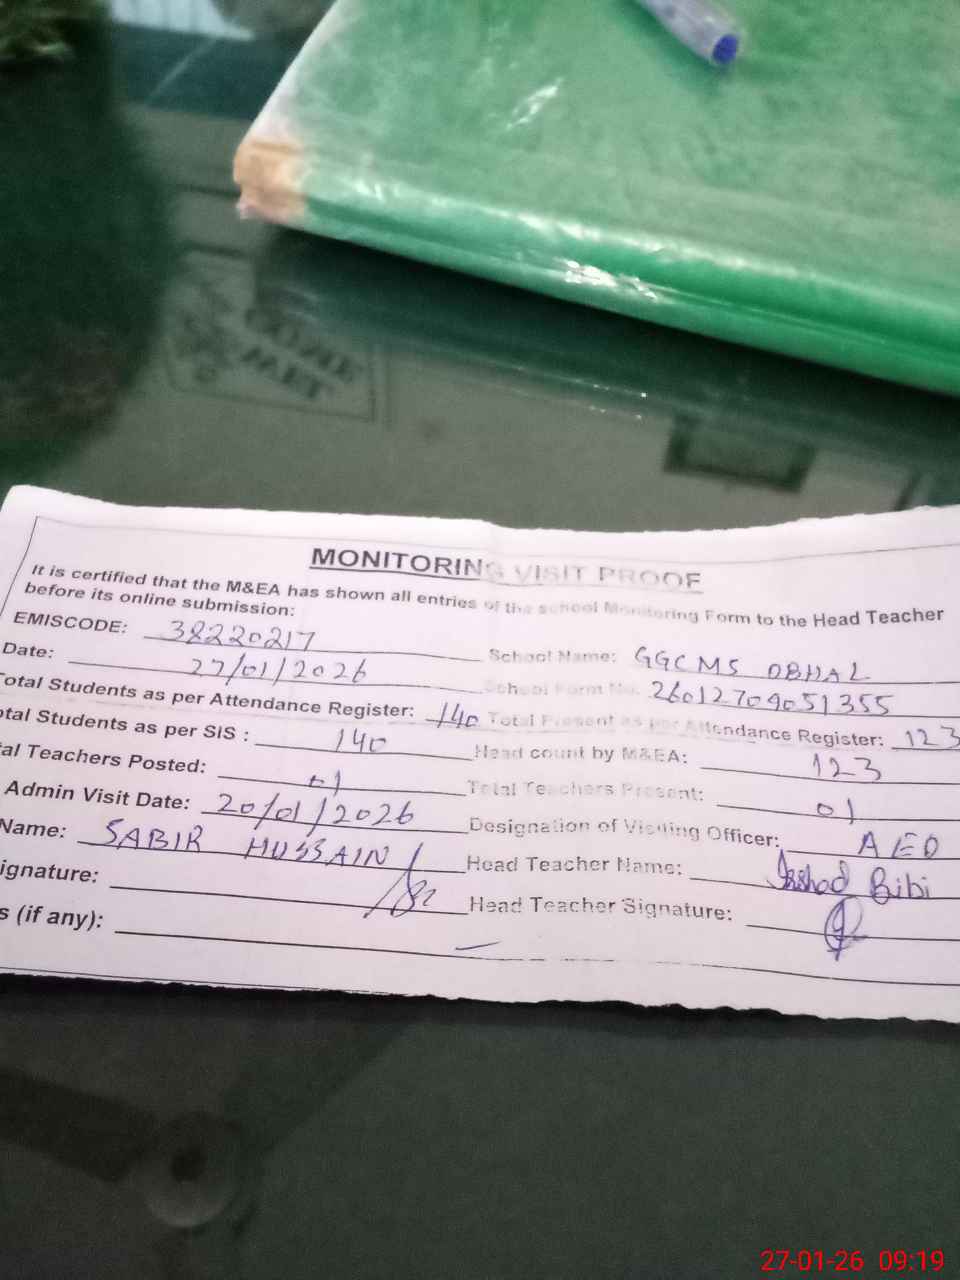 COME
MET
MONITORING VISIT PROOF
It is certified that the M&EA has shown all entries of the school Monitoring Form to the Head Teacher
before its online submission:
EMISCODE: 38220217 School Name: GGCMS OBHAL
Date: 27/01/2026 School Form No. 26012709051355
Total Students as per Attendance Register: 140 Total Present as per Attendance Register: 123
otal Students as per SIS : 140 Head count by M&EA: 123
al Teachers Posted: 01 Total Teachers Present: 01
Admin Visit Date: 20/01/2026 Designation of Visiting Officer: AEO
Name: SABIR HUSSAIN Head Teacher Name: Bibi
ignature: Head Teacher Signature:
s (if any):
27-01-26 09:19